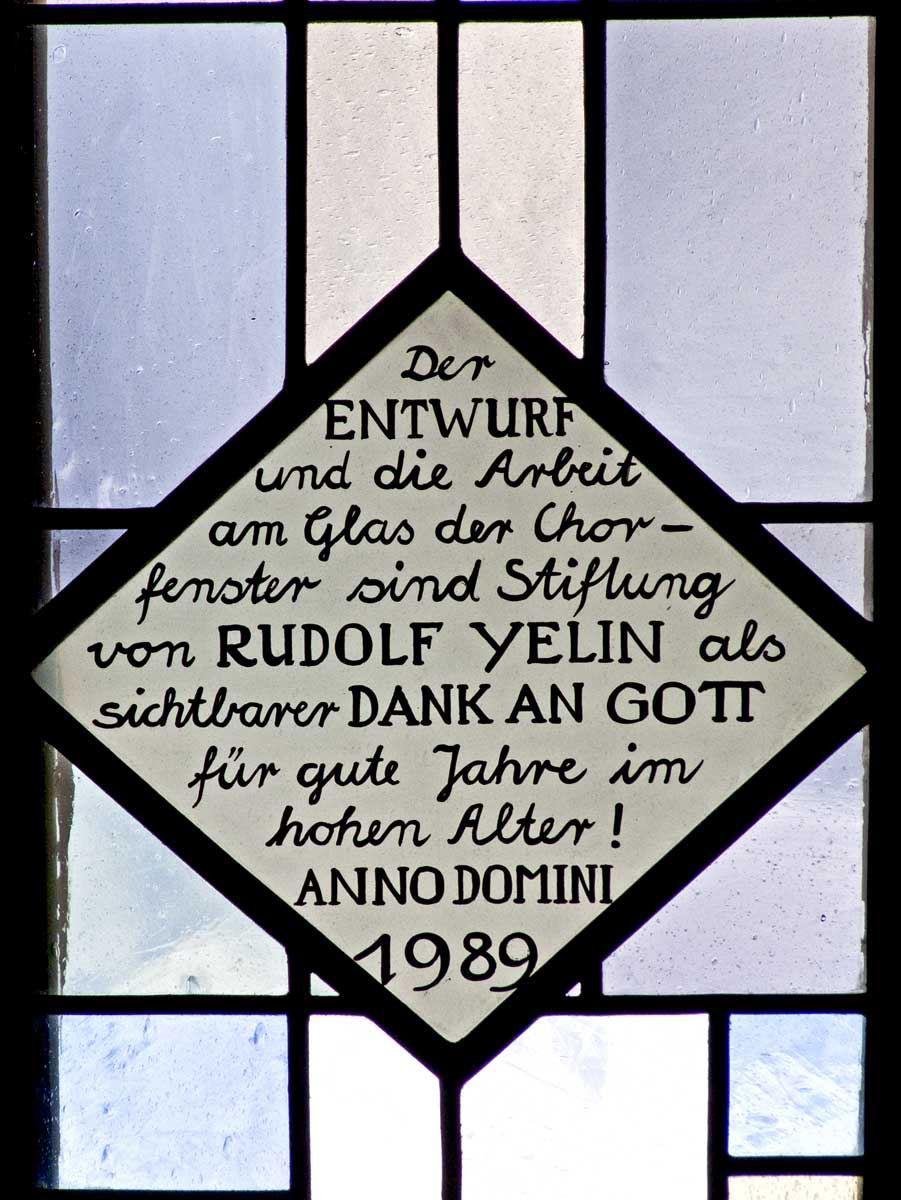 Der
ENTWURF
und die Arbeit
am Glas der Chor-
fenster sind Stiftung
von RUDOLF YELIN als
sichtbarer DANK AN GOTT
für gute Jahre im
hohen Alter!
ANNO DOMINI
1989